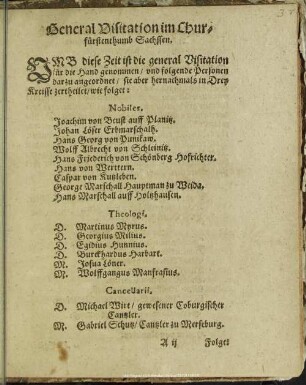 General Visitation im Chur⸗
fürstenthumb Sachssen.
UMB diese Zeit ist die general Visitation
für die Hand genommen / vnd folgende Personen
darzu angeordnet / sie aber hernachmals in Drey
Kreisse zertheilet / wie folget:
Nobiles.
Joachim von Beust auff Planitz.
Johan Löser Erbmarschalh.
Hans Georg von Punikaw.
Wolff Albrecht von Schleinitz.
Hans Friederich von Schönberg Hofrichter.
Hans von Werttern.
Caspar von Kutzleben.
George Marschall Hauptman zu Weida.
Hans Marschall auff Holtzhausen.
Theologi.
D. Martinus Myrus.
D. Georgius Milius.
D. Egidius Hunnius.
D. Burckhardus Harbart.
M. Josua Löner.
M. Wolffgangus Mamfrasius.
Cancellarii.
D. Michael Wirt / gewesener Coburgischer
Cantzler.
M. Gabriel Schutz / Cantzler zu Merseburg.
A ij Folget